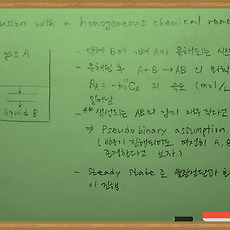 usion with a homogeneous chemical reac
gas A
liquid B
- 액체 B에 기체 A가 용해되는 시스
- 용해된 후 A + B → AB의 화학
R_A = -k₁'''C_A 의 속도 (mol/
일어남
- ** 생성되는 AB의 양이 아주 작다고
⇒ Pseudo binary assumption
(반응이 진행되어도 여전히 A, B
존재한다고 보자.)
- Steady state로 물질전달과
이 진행